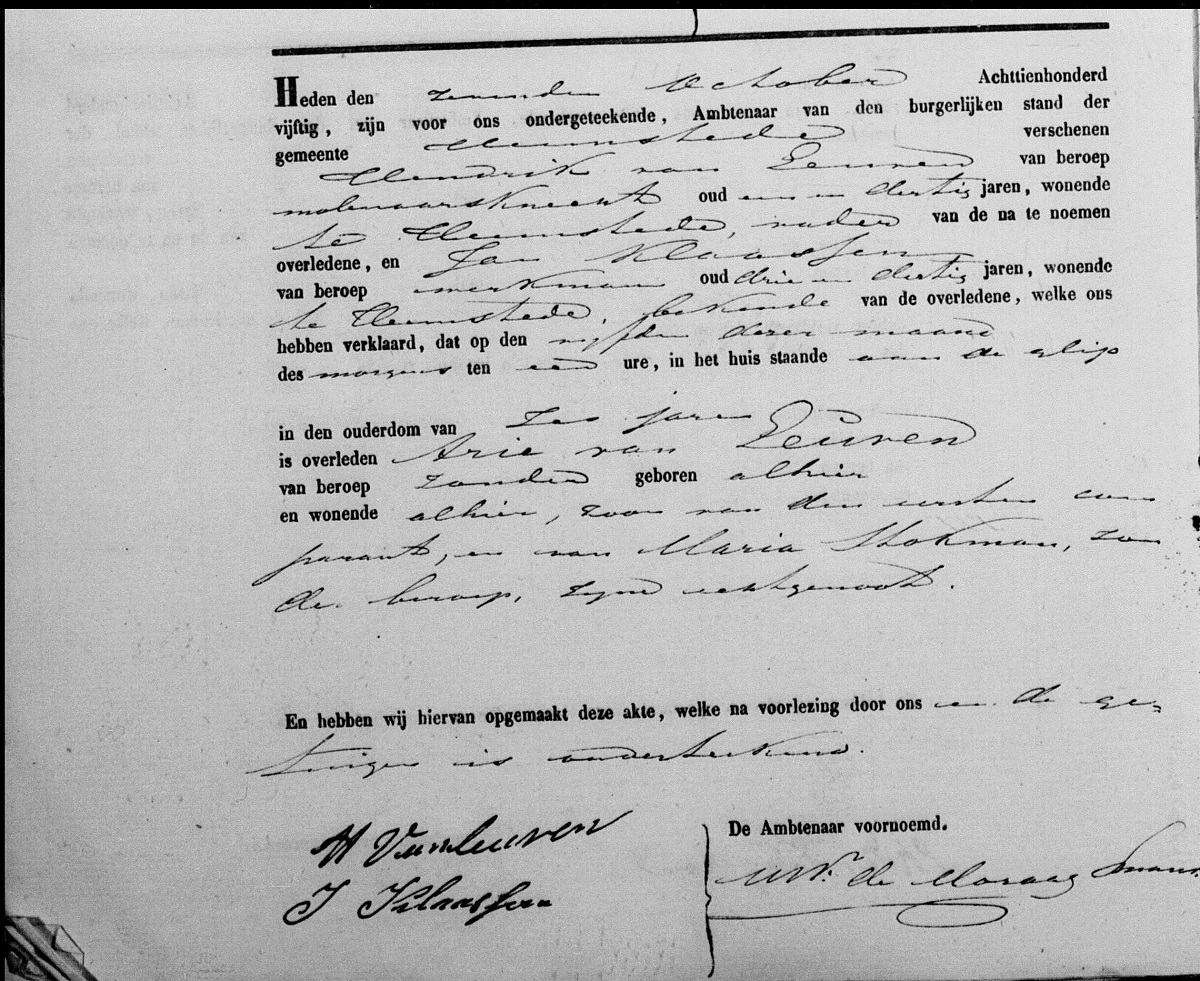 Heden den zevenden October Achttienhonderd
vijftig, zijn voor ons ondergeteekende, Ambtenaar van den burgerlijken stand der
gemeente Heemstede verschenen
Hendrik van Leuven van beroep
molenaarsknecht oud een en dertig jaren, wonende
te Heemstede, vader van de na te noemen
overledene, en Jan Klaassen
van beroep werkman oud drie en dertig jaren, wonende
te Heemstede, bekende van de overledene, welke ons
hebben verklaard, dat op den vijfden dezer maand
des morgens ten een ure, in het huis staande aan de glip
in den ouderdom van Zes jaren
is overleden Arie van Leuven
van beroep zonder geboren alhier
en wonende alhier, zoon van den eersten com
parant, en van Maria Stokman, zon
der beroep, zijne echtgenoot.
En hebben wij hiervan opgemaakt deze akte, welke na voorlezing door ons en de ge-
tuigen is onderteekend.
H VanLeuven
De Ambtenaar voornoemd.
J Klaassen
de